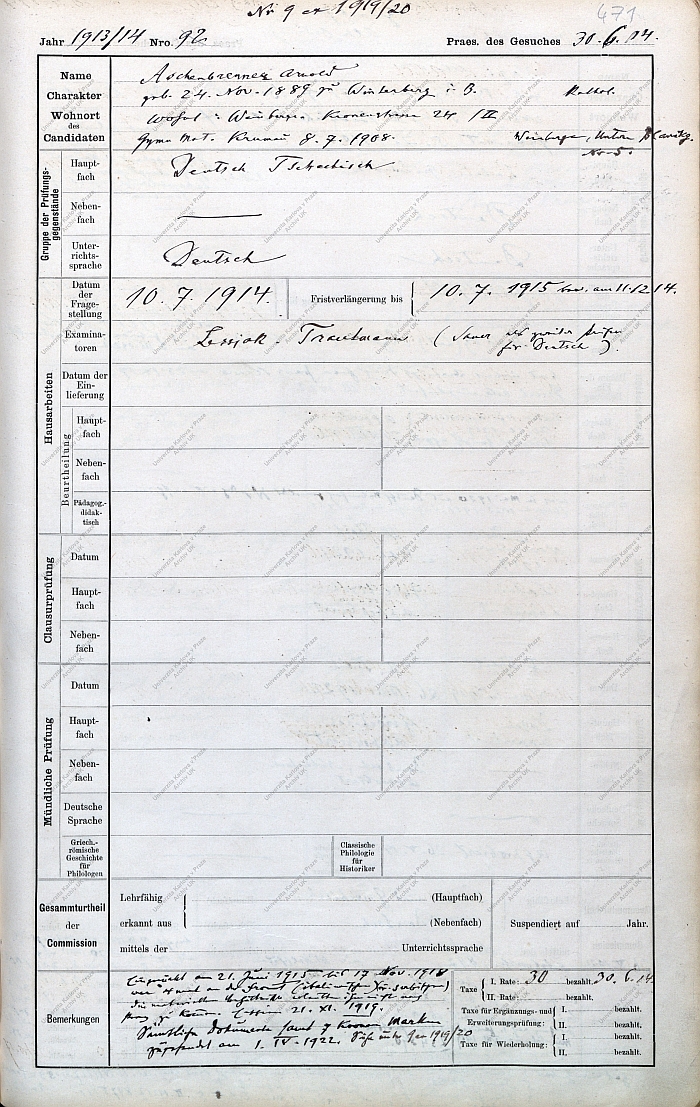 Nr 9 ex 1919/20
471
Jahr 1913/14 Nro. 92
Praes. des Gesuches 30. 6. 14.
Name
Charakter
Wohnort
des
Candidaten
Aschenbrenner Arnold
geb. 24. Nov. 1889 zu Winterberg i. B. Kathol.
Weinberge, Kronenstrasse 24 / II
Gymn. Mat. Krumau 8. 7. 1908. Weinberge, Untere
No 5.
Gruppe der Prüfungs-
gegenstände
Haupt-
fach
Deutsch Tschechisch
Neben-
fach
Unter-
richts-
sprache
Deutsch
Hausarbeiten
Datum
der
Frage-
stellung
10. 7. 1914.
Fristverlängerung bis
10. 7. 1915 bzw. am 11.12.14.
Examina-
toren
Lessiak - Trautmann (Sauer als zweiter Prüfer
für Deutsch).
Datum der
Ein-
lieferung
Beurtheilung
Haupt-
fach
Neben-
fach
Pädagog.-
didak-
tisch
Clausurprüfung
Datum
Haupt-
fach
Neben-
fach
Mündliche Prüfung
Datum
Haupt-
fach
Neben-
fach
Deutsche
Sprache
Griech.-
römische
Geschichte
für
Philologen
Classische
Philologie
für
Historiker
Gesammturtheil
der
Commission
Lehrfähig (Hauptfach)
erkannt aus (Nebenfach)
mittels der Unterrichtssprache
Suspendiert auf Jahr.
Bemerkungen
Eingerückt am 21. Juni 1915 bis 17 Nov. 1918
war an der Front
21. XI. 1919.
Sämtliche Dokumente samt 7 Kronen Marken
am 1. IV. 1922. Siehe unter 9 ex 1919/20
Taxe
I. Rate: 30 bezahlt. 30. 6. 14.
II. Rate: bezahlt.
Taxe für Ergänzungs- und
Erweiterungsprüfung:
I. bezahlt.
II. bezahlt.
Taxe für Wiederholung:
I. bezahlt.
II. bezahlt.
Univerzita Karlova v Praze
Archiv UK